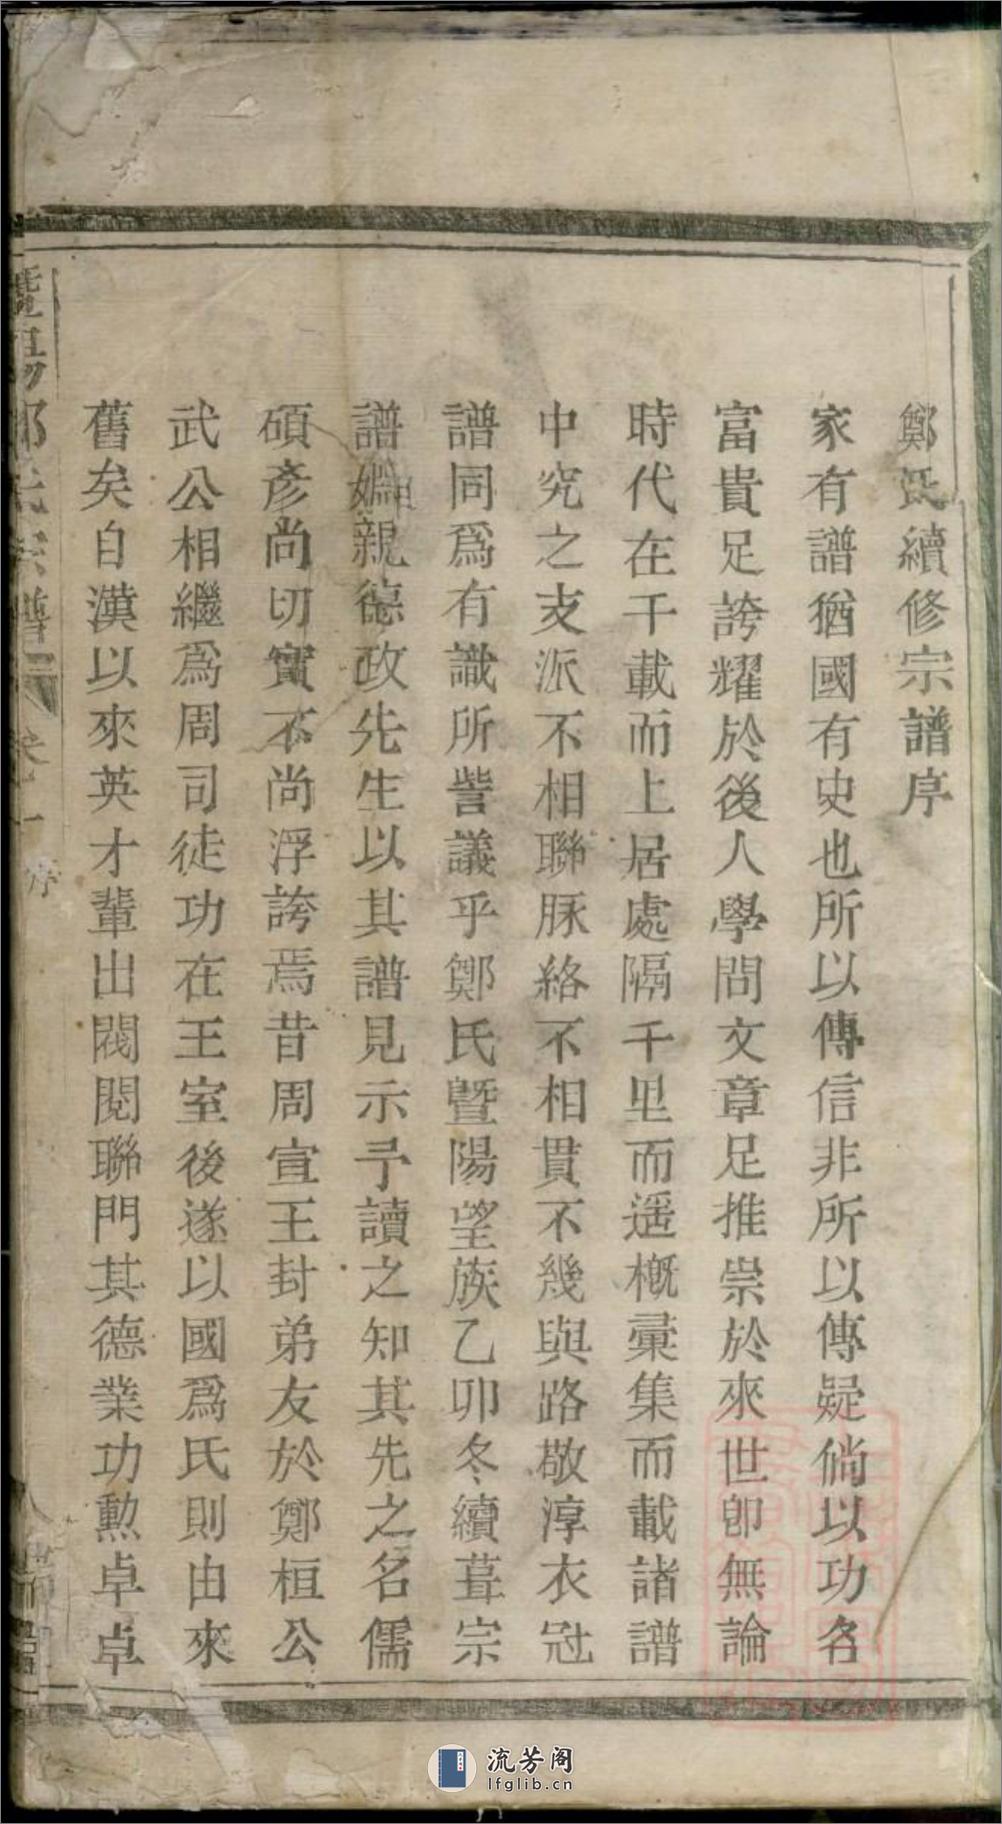 鄭氏續修宗譜序
家有譜猶國有史也所以傳信非所以傳疑倘以功名
富貴足誇耀於後人學問文章足推崇於來世卽無論
時代在千載而上居處隔千里而遥槪彙集而載諸譜
中究之支派不相聯脈絡不相貫不幾與路敬淳衣冠
譜同爲有識所訾議乎鄭氏暨陽望族乙卯冬續葺宗
譜婣親德政先生以其譜見示予讀之知其先之名儒
碩彥尚切實不尚浮誇焉昔周宣王封弟友於鄭桓公
武公相繼爲周司徒功在王室後遂以國爲氏則由來
舊矣自漢以來英才輩出閥閱聯門其德業功勲卓卓
暨陽鄭氏宗譜 卷一 序
流芳阁
lfglib.cn